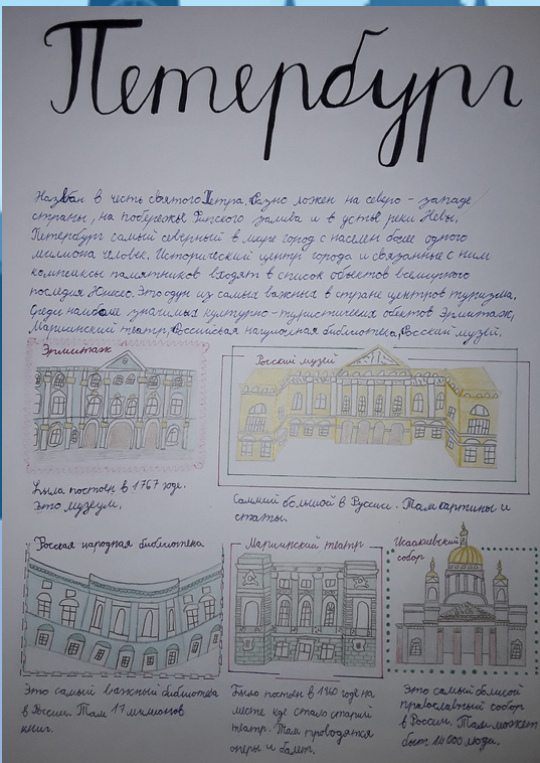 Петербург
Назван в честь святого Петра, Разно ложен на северо - западе
страны, на побережье Финского залива и в устье реки Невы.
Петербург самый северный в мире город с населен более одного
миллиона человек. Исторический центр города и связанные с ним
комплексы памятников входят в список объектов всемирного
последия Юнеско. Это один из самых важных в стране центров туризма.
Среди наиболее значимых культурно - туристических обектов Эрмитаж,
Мариинский театр, Российская национальная библиотека, Росский музей.
Эрмитаж
Была постоен в 1767 годе.
Это музеум.
Росский музей
Саммий большой в Русии. Там картины и
статы.
Росская народная библиотека
Это самый важный библиотева
в России. Там 17 милионов
книг.
Мариинский театр
Было постоен в 1860 годе на
месте где стало старий
театр. Там проводятся
оперы и балет.
Исаакиевский
собор
Это самый болшой
православный собор
в России. Там может
быт 14 000 люди.